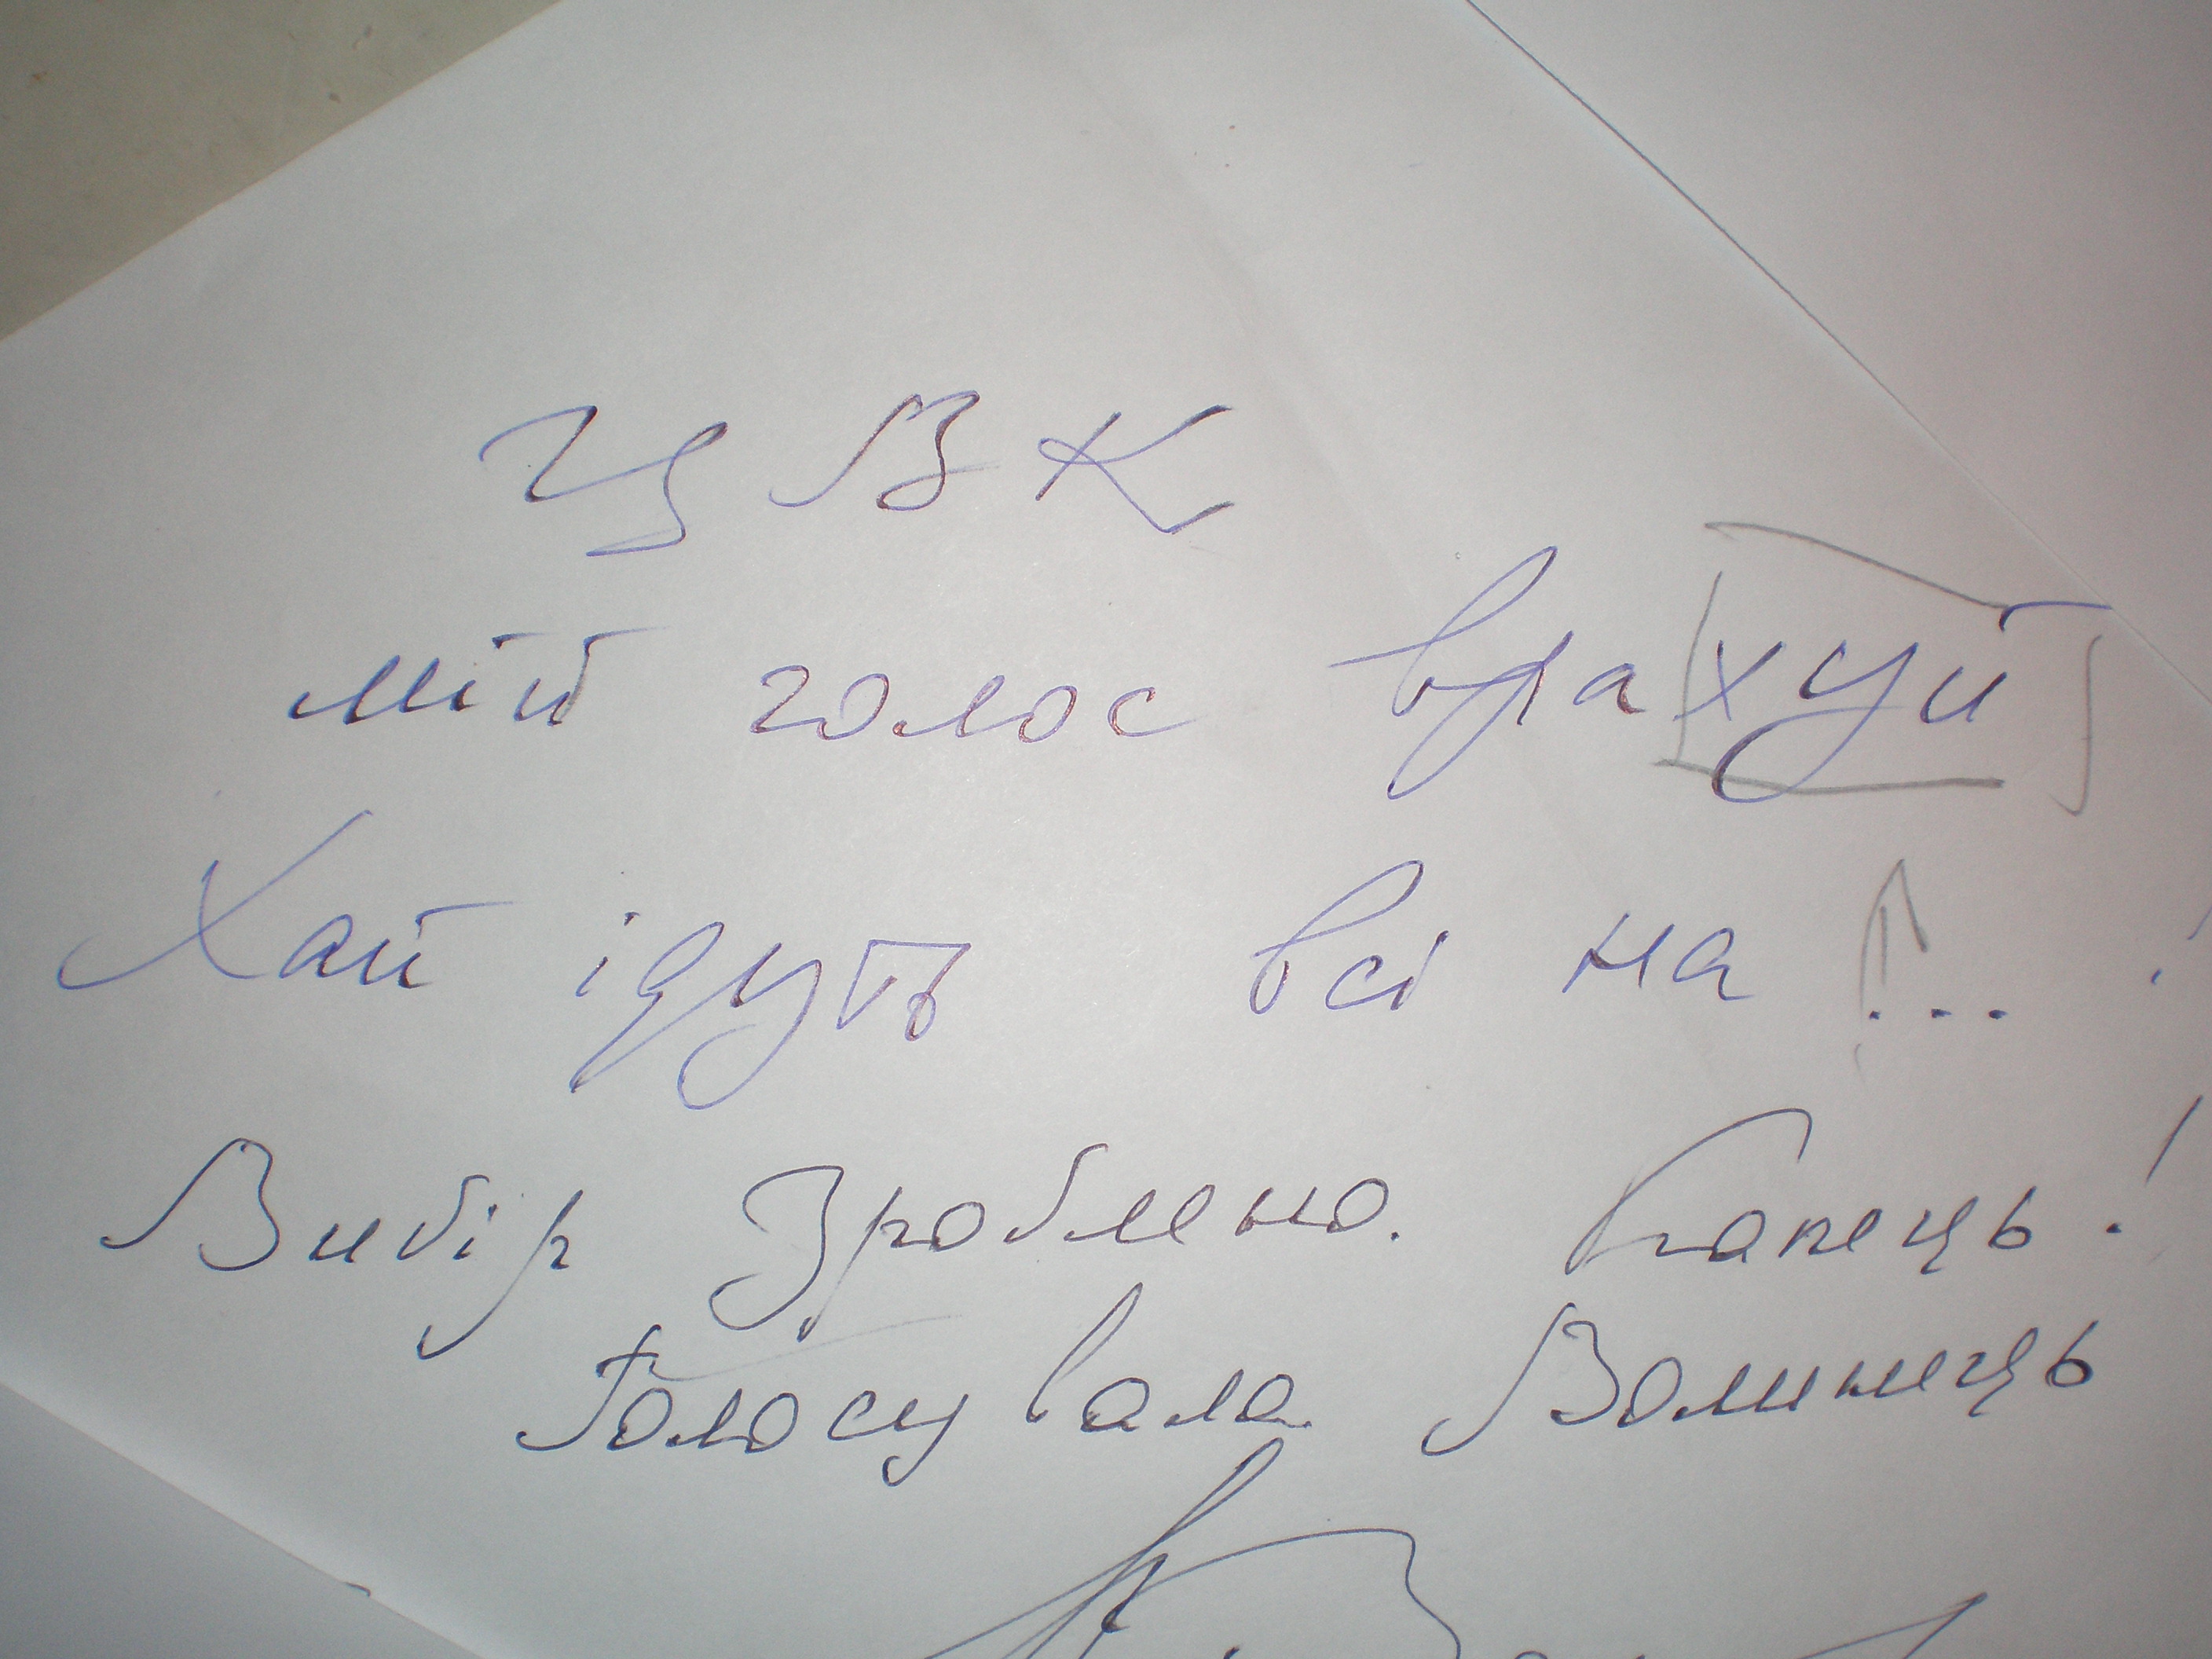 ЦВК
мій голос врахуй
Хай ідуть всі на ... !
Вибір зроблено. Капець!
Голосувала Волинець